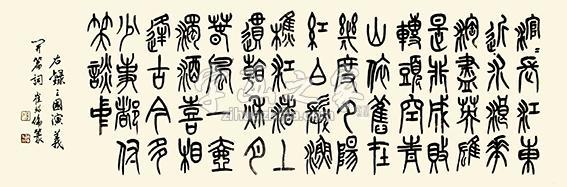 滚々長江東
逝水浪花
淘盡英雄
是非成敗
轉頭空青
山依舊在
幾度夕陽
紅白髮漁
樵江渚上
慣看秋月
春風一壺
濁酒喜相
逢古今多
少事都付
笑談中
右錄三國演義
開篇詞 崔 篆